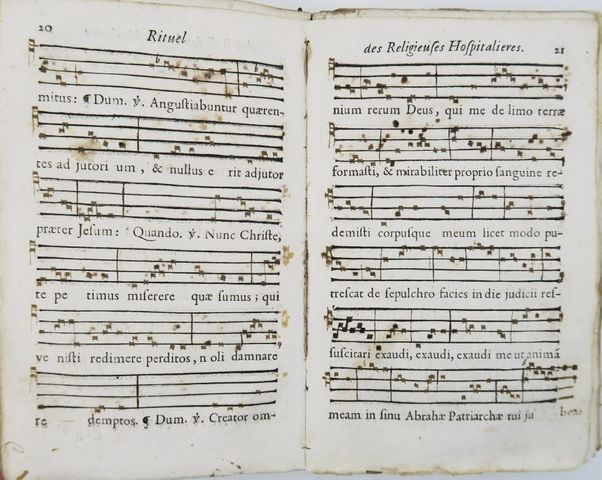 20
Rituel
mitus: ¶ Dum. ℣. Anguſtiabuntur quæren-
tes ad jutori um, & nullus e rit adjutor
præter Jeſum: Quando. ℣. Nunc Chriſte,
te pe timus miſerere quæ ſumus; qui
ve niſti redimere perditos, n oli damnare
re demptos. ¶ Dum. ℣. Creator om-
des Religieuſes Hoſpitalieres. 21
nium rerum Deus, qui me de limo terræ
formaſti, & mirabiliter proprio ſanguine re-
demiſti corpuſque meum licet modo pu-
treſcat de ſepulchro facies in die judicii reſ-
ſuſcitari exaudi, exaudi, exaudi me ut anima
meam in ſinu Abrahæ Patriarchæ tui ju beas